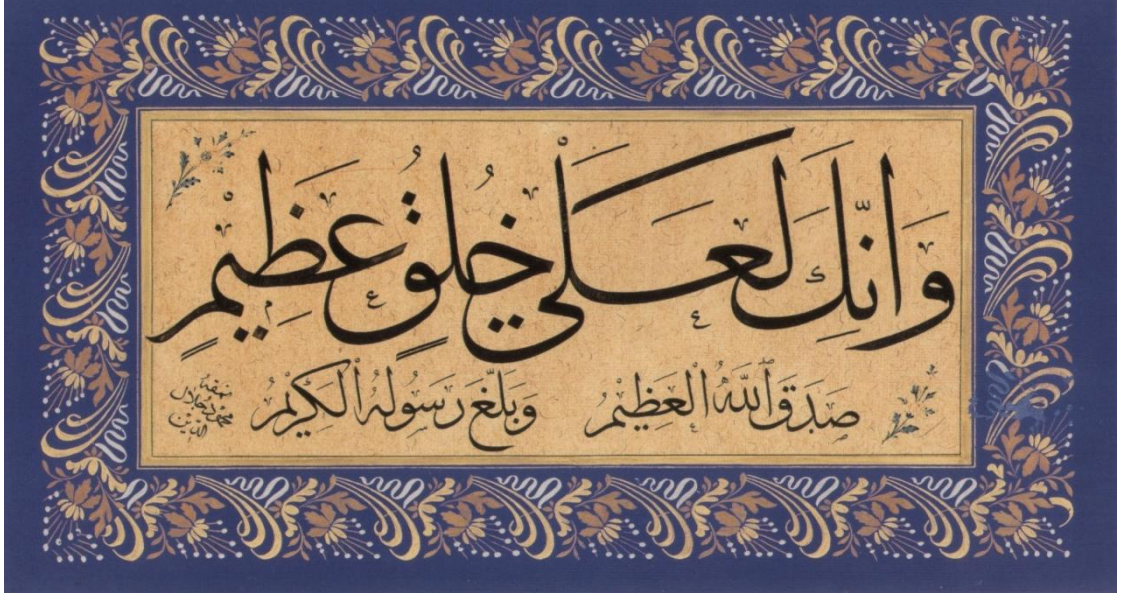 وَإِنَّكَ لَعَلَىٰ خُلُقٍ عَظِيمٍ
صَدَقَ ٱللهُ الْعَظِيمُ وَبَلَّغَ رَسُولُهُ ٱلْكَرِيمُ
نمقه محمد جلال الدين